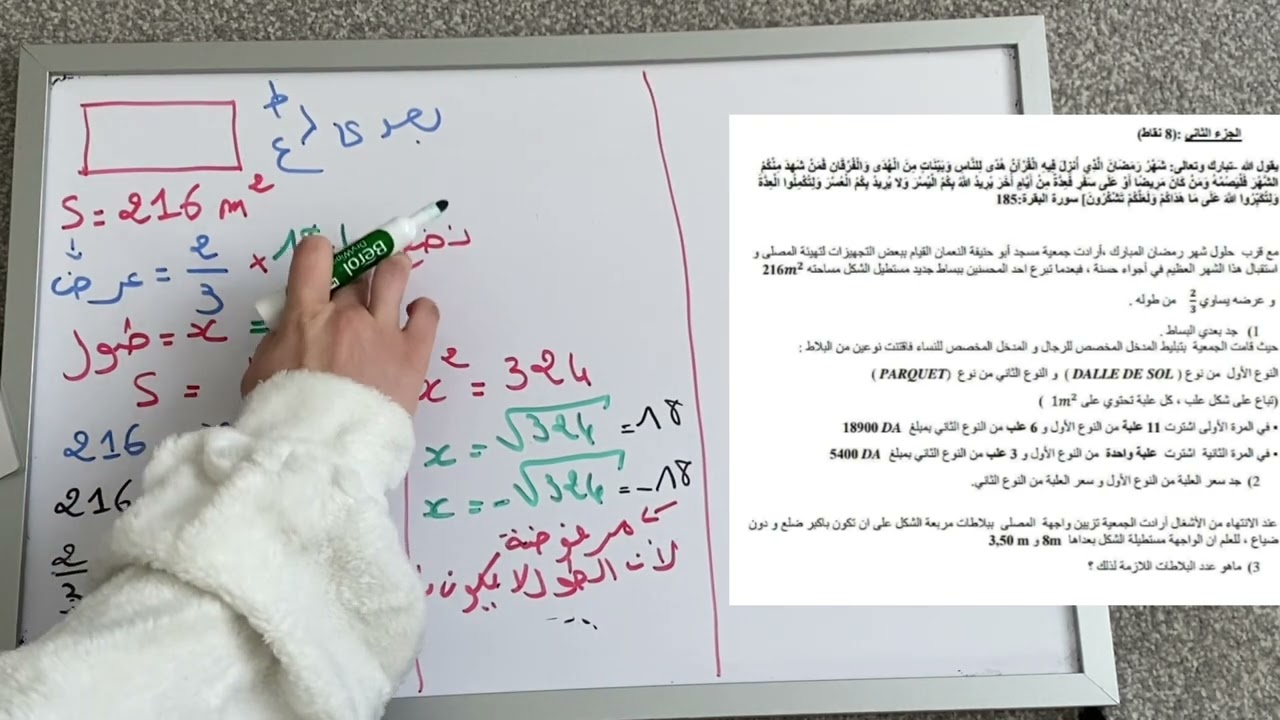 بعدي ط ع
S = 216 m²
عرض = 2/3 ×
طول = x =
S =
216
216
2/3
x² = 324
x = √324 = 18
x = -√324 = -18
مرفوضة
لأن الطول لا يكون
...
الجزء الثاني :(8 نقاط)
يقول الله -تبارك وتعالى: شَهْرُ رَمَضَانَ الَّذِي أُنزِلَ فِيهِ الْقُرْآنُ هُدًى لِلنَّاسِ وَبَيِّنَاتٍ مِنَ الْهُدَى وَالْفُرْقَانِ فَمَنْ شَهِدَ مِنْكُمُ
الشَّهْرَ فَلْيَصُمْهُ وَمَنْ كَانَ مَرِيضًا أَوْ عَلَى سَفَرٍ فَعِدَّةٌ مِنْ أَيَّامٍ أُخَرَ يُرِيدُ اللَّهُ بِكُمُ الْيُسْرَ وَلَا يُرِيدُ بِكُمُ الْعُسْرَ وَلِتُكْمِلُوا الْعِدَّةَ
وَلِتُكَبِّرُوا اللَّهَ عَلَى مَا هَدَاكُمْ وَلَعَلَّكُمْ تَشْكُرُونَ] سورة البقرة:185
مع قرب حلول شهر رمضان المبارك ،أرادت جمعية مسجد أبو حنيفة النعمان القيام ببعض التجهيزات لتهيئة المصلى و
استقبال هذا الشهر العظيم في أجواء حسنة ، فبعدما تبرع احد المحسنين ببساط جديد مستطيل الشكل مساحته 216m²
و عرضه يساوي 2/3 من طوله .
1) جد بعدي البساط .
حيث قامت الجمعية بتبليط المدخل المخصص للرجال و المدخل المخصص للنساء فاقتنت نوعين من البلاط :
النوع الأول من نوع ( DALLE DE SOL ) و النوع الثاني من نوع (PARQUET )
(تباع على شكل علب ، كل علبة تحتوي على 1m² )
• في المرة الأولى اشترت 11 علبة من النوع الأول و 6 علب من النوع الثاني بمبلغ 18900 DA
• في المرة الثانية اشترت علبة واحدة من النوع الأول و 3 علب من النوع الثاني بمبلغ 5400 DA
2) جد سعر العلبة من النوع الأول و سعر العلبة من النوع الثاني.
عند الانتهاء من الأشغال أرادت الجمعية تزيين واجهة المصلى ببلاطات مربعة الشكل على ان تكون باكبر ضلع و دون
ضياع ، للعلم ان الواجهة مستطيلة الشكل بعداها 8m و 3,50 m
3) ماهو عدد البلاطات اللازمة لذلك ؟